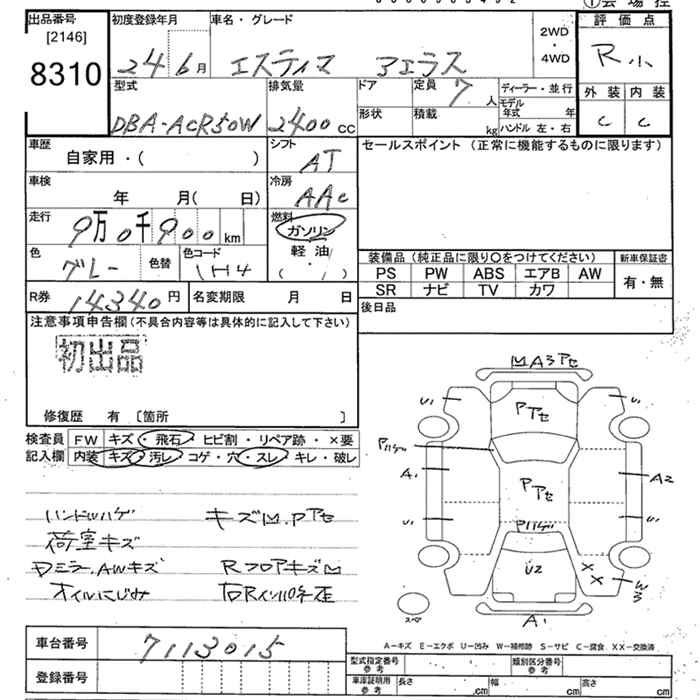 出品番号
[2146]
8310
初度登録年月
24 6月
車名・グレード
エスティマ アエラス
2WD
・
4WD
評価点
R小
外装 内装
C C
型式
DBA-ACR50W
排気量
2400cc
ドア
定員
7人
形状
積載
kg
ディーラー・並行
モデル年式 年
ハンドル 左・右
車歴
自家用・( )
シフト
AT
車検
年 月( 日)
冷房
AAC
走行
9万0千900km
燃料
ガソリン
軽油
( ・ )
色
グレー
色替
色コード
1H4
R券
14340円
名変期限 月 日
セールスポイント (正常に機能するものに限ります)
装備品(純正品に限り○をつけてください)
新車保証書
PS PW ABS エアB AW
SR ナビ TV カワ
有・無
後日品
注意事項申告欄(不具合内容等は具体的に記入して下さい)
初出品
修復歴 有 [箇所 ]
検査員
記入欄
FW キズ・飛石・ヒビ割・リペア跡・×要
内装 キズ・汚レ・コゲ・穴・スレ・キレ・破レ
ハンドルハゲ キズM.Pアセ
荷室キズ
Dミラ.AWキズ RフロアキズM
オイルにじみ 右Rインパネ歪
MA3アセ
U1
U1
Pアセ
Pハゲ
A1
A2
Pアセ
U1
U1
Pハゲ
U2
XX
W3
A1
スペア
A-キズ E-エクボ U-凹み W-補修跡 S-サビ C-腐食 XX-交換済
車台番号
7113015
登録番号
型式指定番号
参考
類別区分番号
参考
車庫証明用
参考
長さ cm
幅 cm
高さ cm